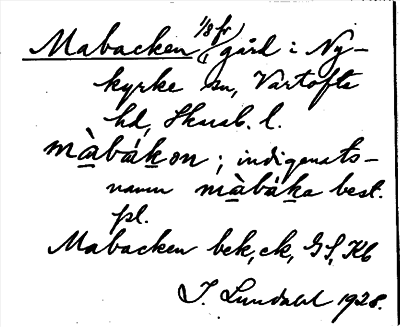 Mabacken (1/8 fr) gård i Ny-
kyrke sn, Vartofts
hd, Skarab. l.
màbák̲on; indigenats-
namn màbák̲a best.
pl.
Mabacken bek, ck, GS, Kb
I. Lundahl 1928.